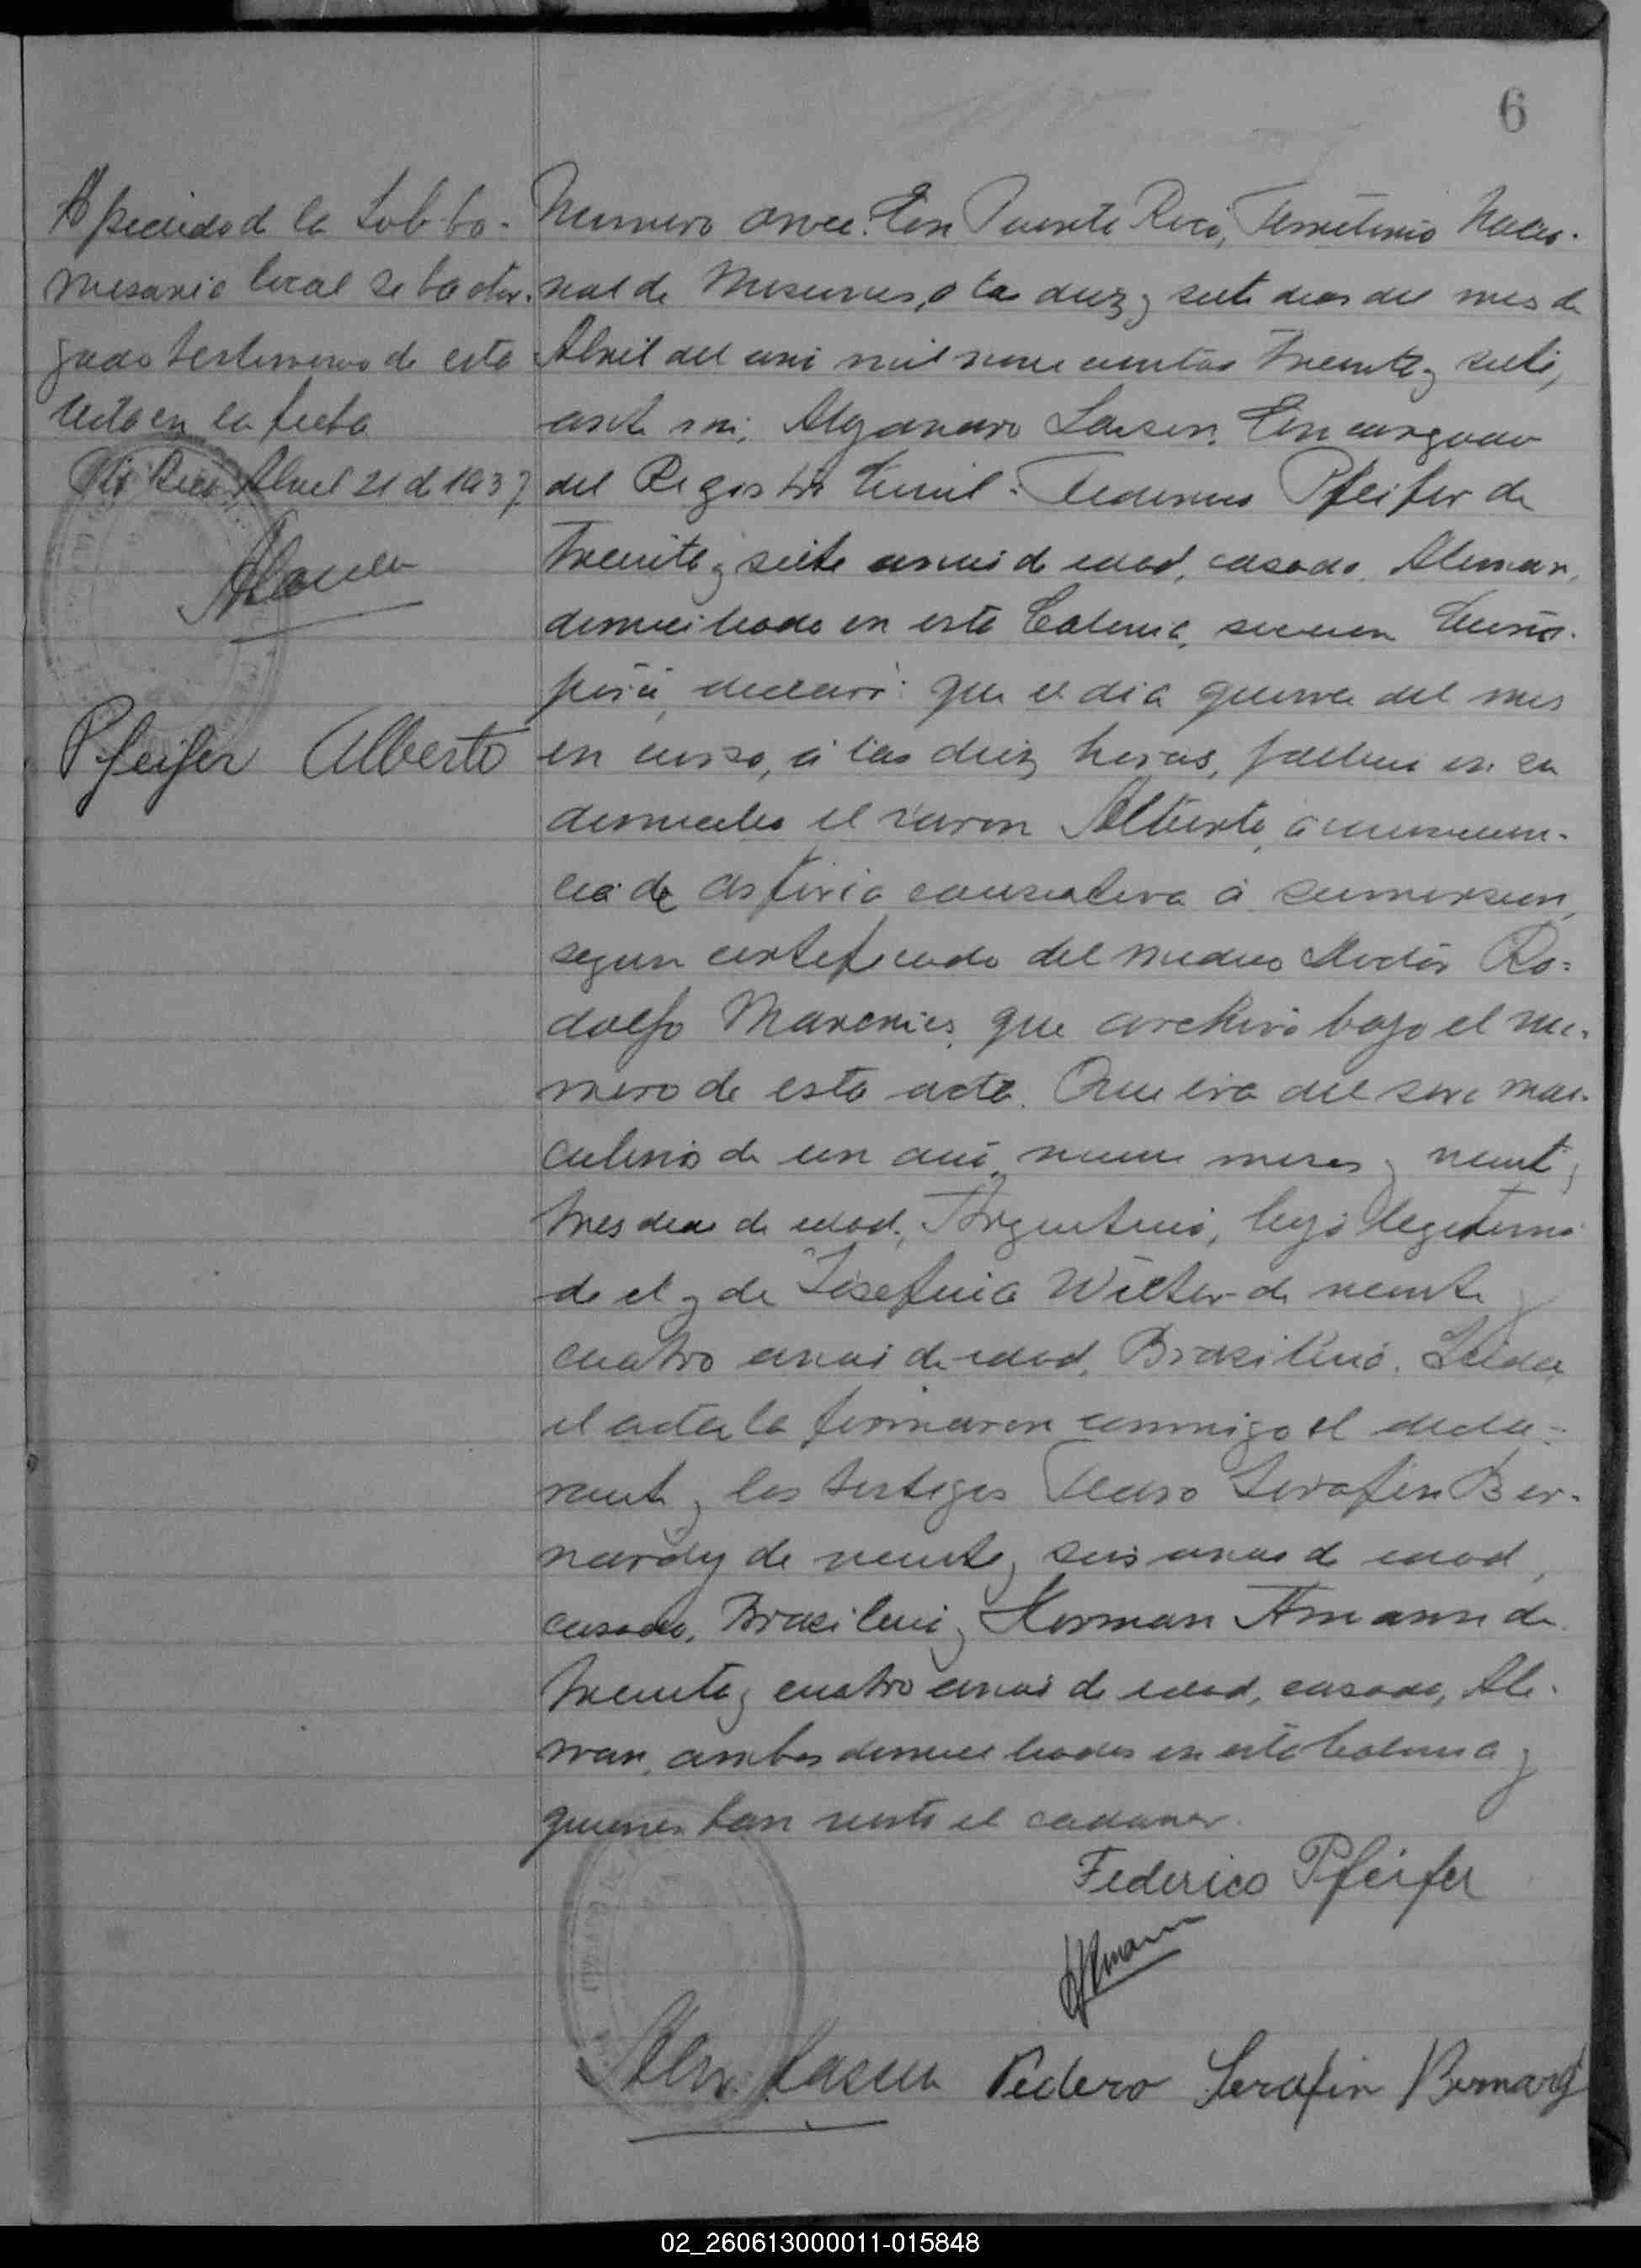 6
A pedido d la Sub-Co-
misaria local se ha otor-
gado testimonio de esta
acta en la fecha
Pto Rico, Abril 21 d 1937
Pfeifer Alberto
Numero once: En Puerto Rico, Territorio Nacio-
nal de Misiones, a los diez y siete dias del mes de
Abril del año mil nove cientos treinta y siete,
ante mi, Alejandro Larsen, Encargado
del Registro Civil: Federico Pfeifer de
treinta y siete años de edad, casado, Aleman,
domiciliado en esta Colonia, seccion Cuña-
pirú, declaró: que el dia quince del mes
en curso, á las diez horas, falleció en su
domicilio el varon Alberto, a consecuen-
cia de asfixia consecutiva á sumersion,
segun certificado del medico Doctor Ro-
dolfo que archivo bajo el nu-
mero de esta acta. Que era del sexo mas-
culino de un año, nueve meses y veinte y
tres dias de edad, Argentino, hijo legitimo
de el y de Josefina Welter de veinte y
cuatro años de edad, Brasileña. Leida
el acta la firmaron conmigo el decla-
rante y los testigos Pedro Serafin Ber-
nardy de veinte y seis años de edad,
casado, Brasileño y Herman Amann de
treinta y cuatro años de edad, casado, Ale-
man, ambos domiciliados en esta Colonia y
quienes han visto el cadaver.
Federico Pfeifer
HAmann
Alej. Larsen Pedero Serafin Bernardy
02_260613000011-015848